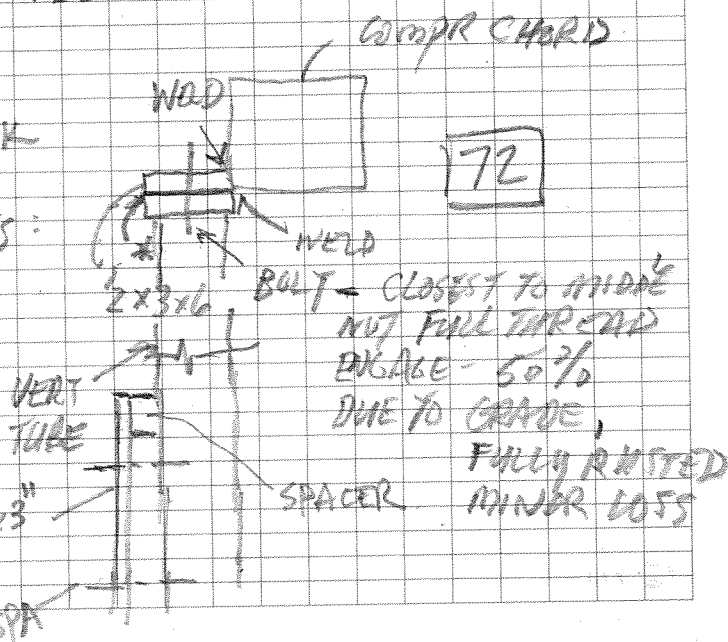 COMPR CHORD
WELD
72
WELD
2x3x6
BOLT - CLOSEST TO MIDDLE
NUT FULL THREAD
ENGAGE - 50%
DUE TO GRADE,
FULLY RUSTED
MINOR LOSS
VERT
TUBE
SPACER
3"